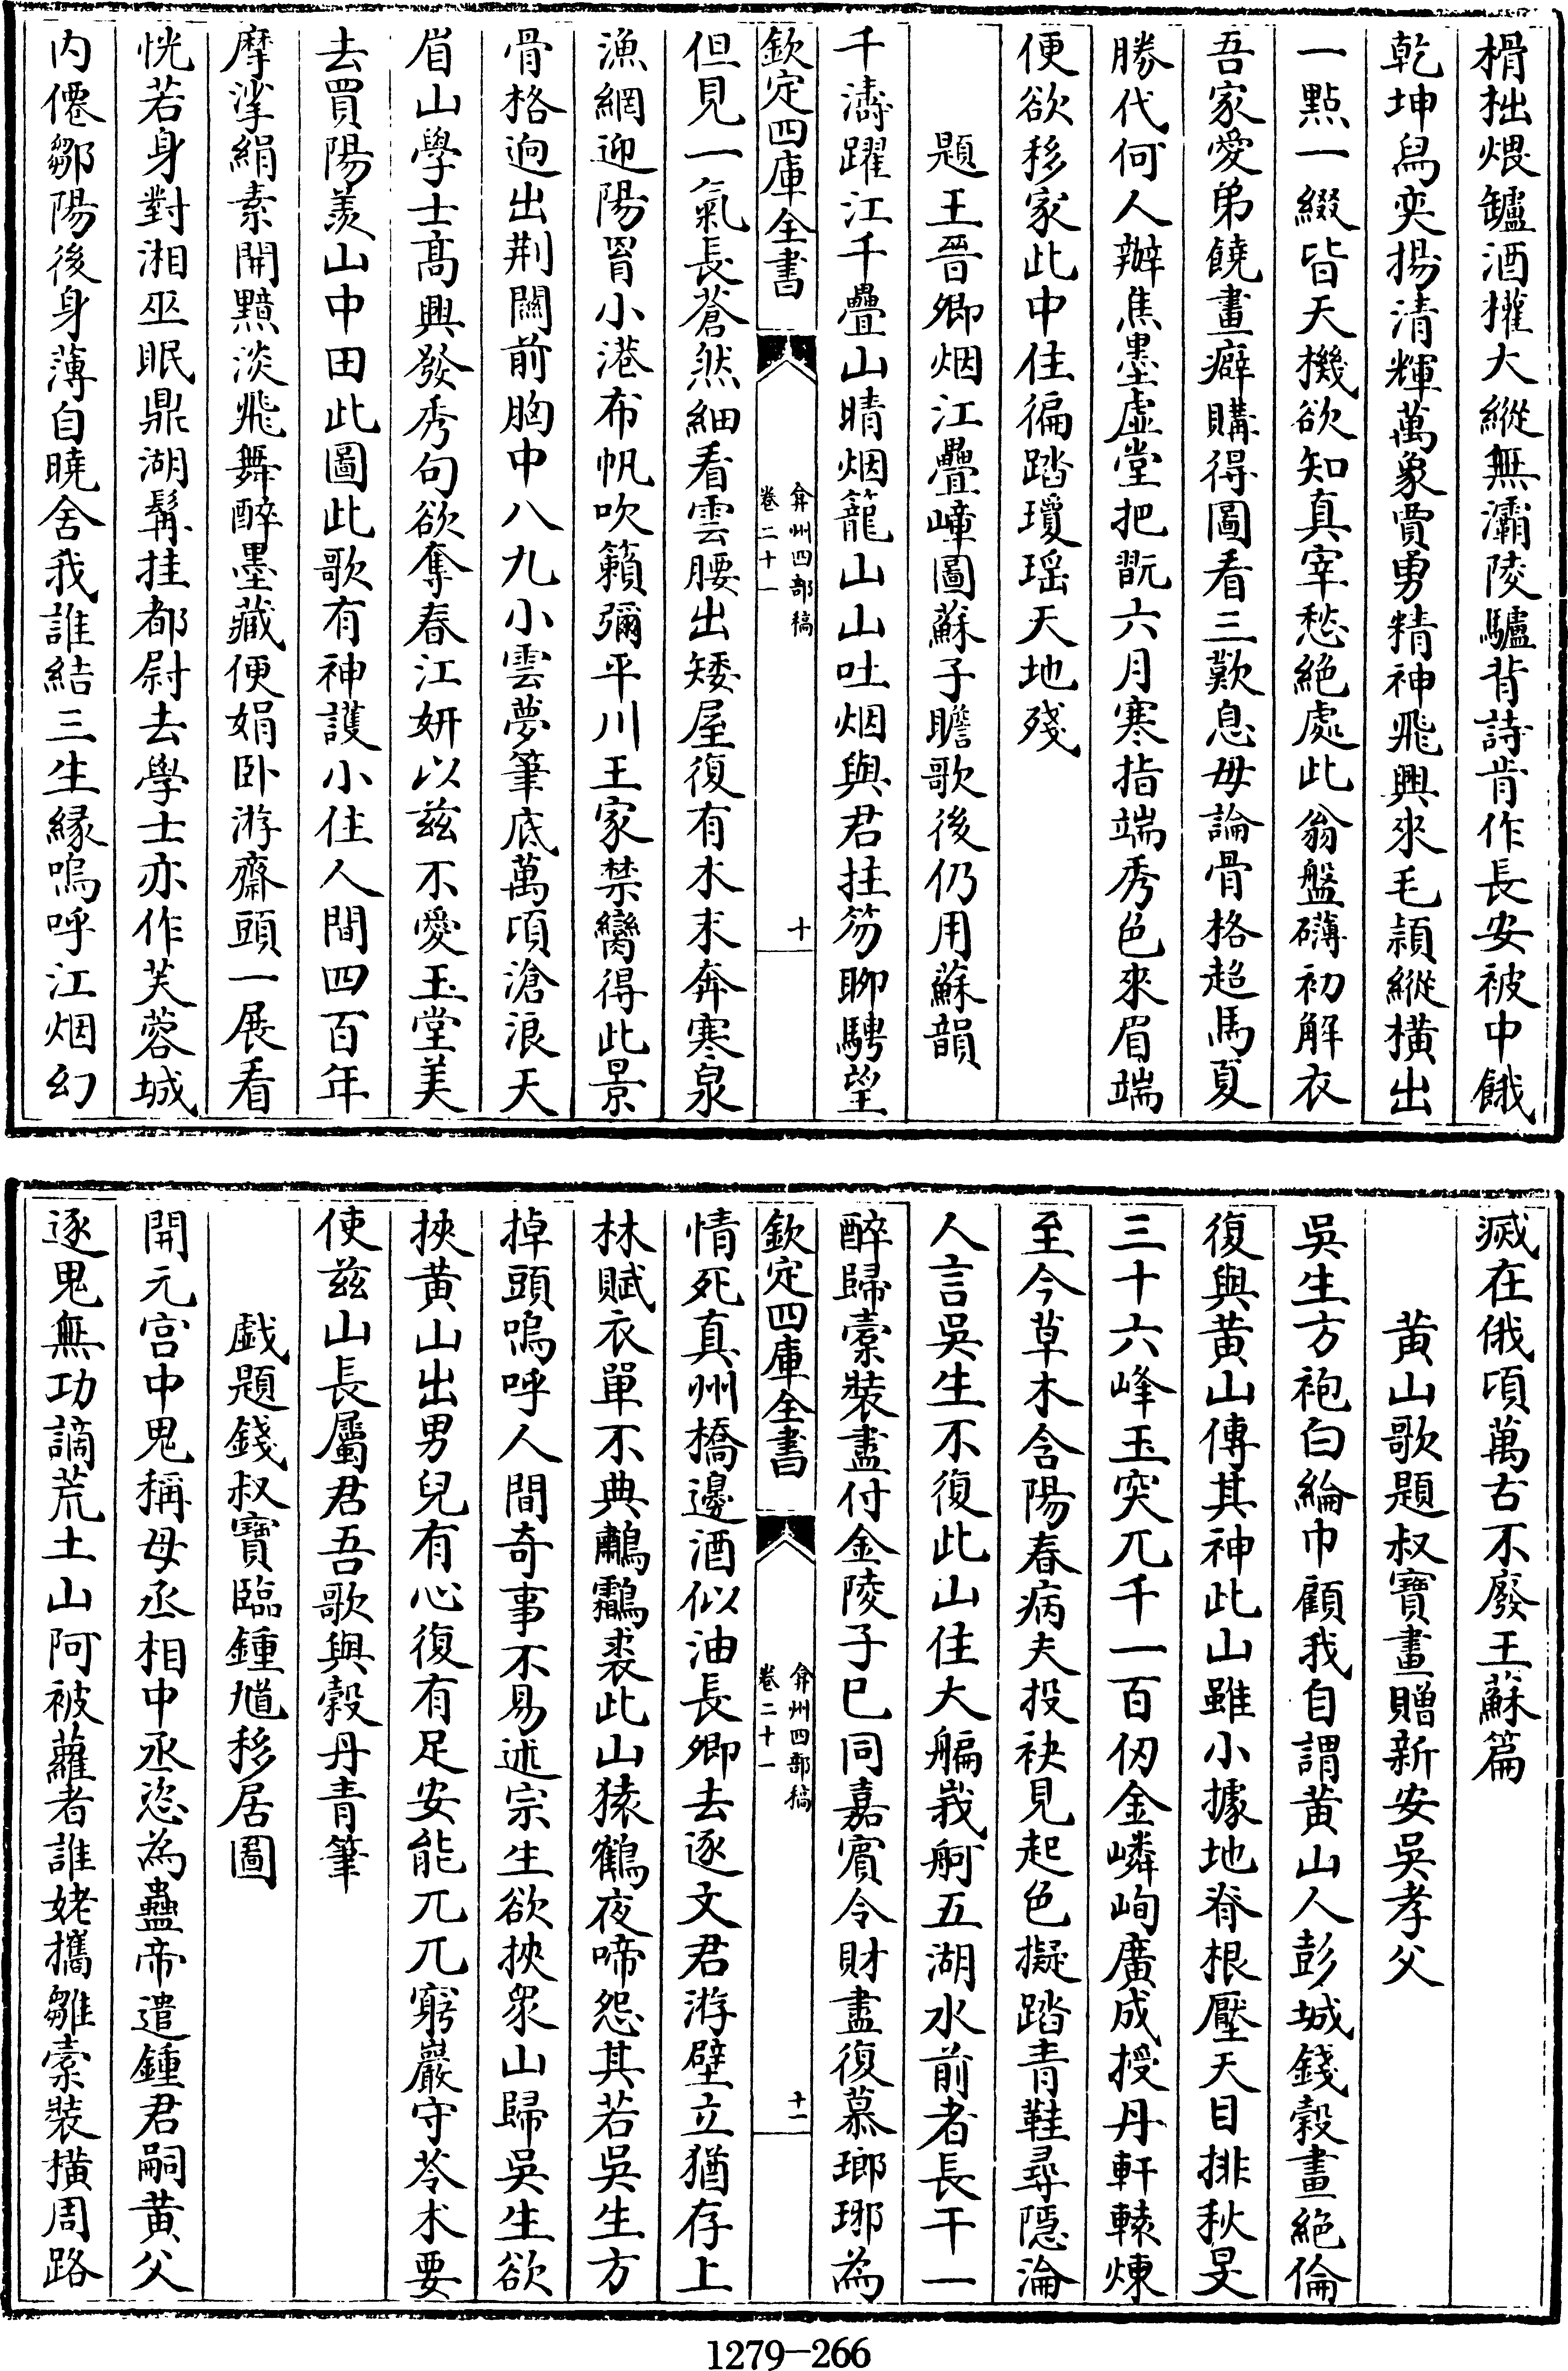 榾柮煨鑪酒㩲大縱無灞陵驢背詩肯作長安被中餓
乾坤為奕揚清輝萬象賈勇精神飛興來毛穎縱橫出
一點一綴皆天機欲知真宰愁絶處此翁盤礴初解衣
吾家愛弟饒畫癖購得圖看三歎息毋論骨格超馬夏
勝代何人辦焦墨虛堂把翫六月寒指端秀色來眉端
便欲移家此中住徧踏瓊瑶天地殘
題王晉卿烟江疊嶂圖蘇子瞻歌後仍用蘇韻
千濤躍江千疊山晴烟籠山山吐烟與君拄笏聊騁望
欽定四庫全書
弇州四部稿
卷二十一
十
但見一氣長蒼然細看雲腰出矮屋復有木末奔寒泉
漁網迎陽罥小港布帆吹籟彌平川王家禁臠得此景
骨格逈出荆關前胸中八九小雲夢筆底萬頃滄浪天
眉山學士髙興發秀句欲奪春江妍以兹不愛玉堂美
去買陽羡山中田此圖此歌有神護小住人間四百年
摩挲絹素開黯淡飛舞醉墨藏便娟卧游齋頭一展看
恍若身對湘巫眠鼎湖髯挂都尉去學士亦作芙蓉城
内僊鄒陽後身薄自曉舍我誰結三生緣嗚呼江烟幻
滅在俄頃萬古不廢王蘇篇
黄山歌題叔寶畫贈新安吳孝父
吳生方袍白綸巾顧我自謂黄山人彭城錢穀畫絶倫
復與黄山傳其神此山雖小據地脊根壓天目排秋旻
三十六峰玉突兀千一百仞金嶙峋廣成授丹軒轅煉
至今草木含陽春病夫投袂見起色擬踏青鞋尋隱淪
人言吳生不復此山住大艑峩舸五湖水前者長干一
醉歸槖裝盡付金陵子巳同嘉賓令財盡復慕瑯琊為
欽定四庫全書
弇州四部稿
卷二十一
十一
情死真州橋邊酒似油長卿去逐文君游壁立猶存上
林賦衣單不典鷫鸘裘此山猿鶴夜啼怨其若吳生方
掉頭嗚呼人間奇事不易述宗生欲挾衆山歸吳生欲
挾黄山出男兒有心復有足安能兀兀窮巖守苓术要
使兹山長屬君吾歌與穀丹青筆
戲題錢叔寶臨鍾馗移居圖
開元宫中鬼稱母丞相中丞恣為蠱帝遣鍾君嗣黄父
逐鬼無功謫荒土山阿被蘿者誰姥攜雛槖裝横周路
1279-266